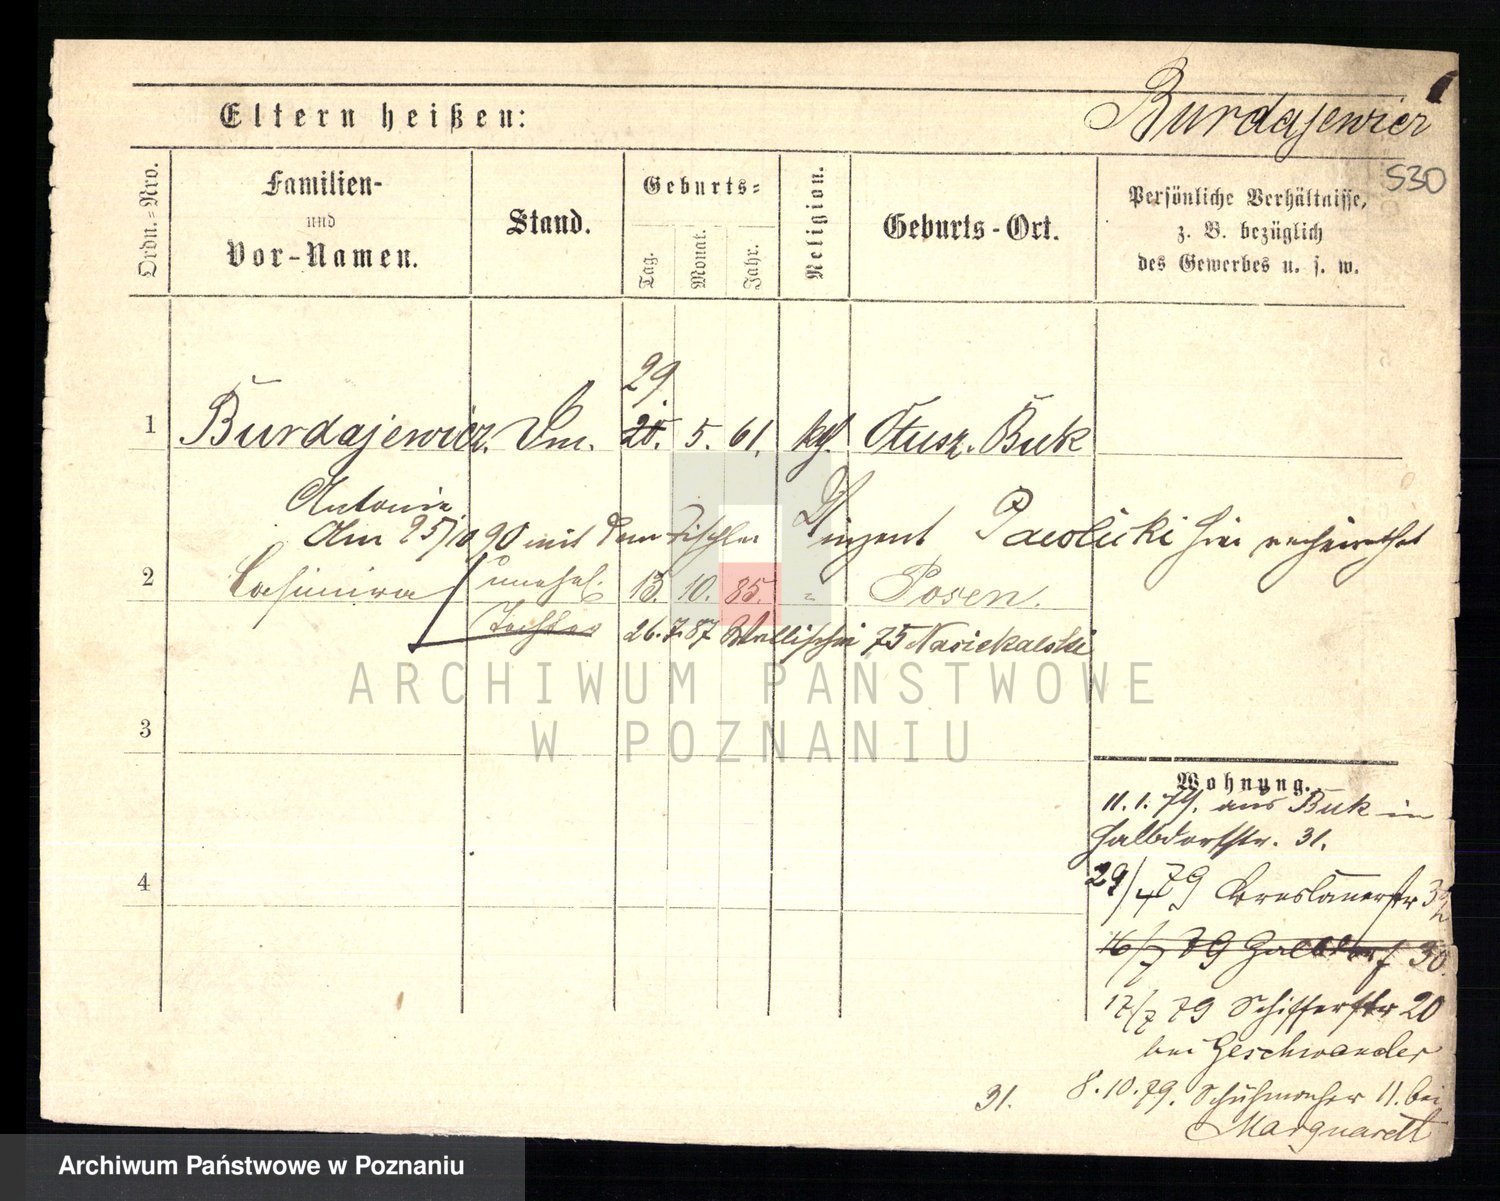 Eltern heißen:
Burdajewicz
530
Ordn.=Nro.
Familien-
und
Vor-Namen.
Stand.
Geburts=
Tag.
Monat.
Jahr.
Religion.
Geburts-Ort.
Persönliche Verhältnisse,
z. B. bezüglich
des Gewerbes u. s. w.
29.
1 Burdajewicz. 5. 61. kth. Otusz. Buk
Antonie
Am 25/10 90 mit dem Tischler Vinzent Pawlicki hier verheirathet
2 Casimira unehel. 13. 10. 85. " Posen.
Tochter 26.7.87 Wallischei 75 Nasiekalski
ARCHIWUM PAŃSTWOWE
W POZNANIU
3
4
Wohnung.
11.1.79. aus Buk in
Halbdorfstr. 31.
29/4 79 Breslauerstr
16/7 79 Halbdorf 30.
17/7 79 Schifferstr 20
bei Geschwander
31. 8.10.79. Schuhmacher 11. bei
Marquardt
Archiwum Państwowe w Poznaniu